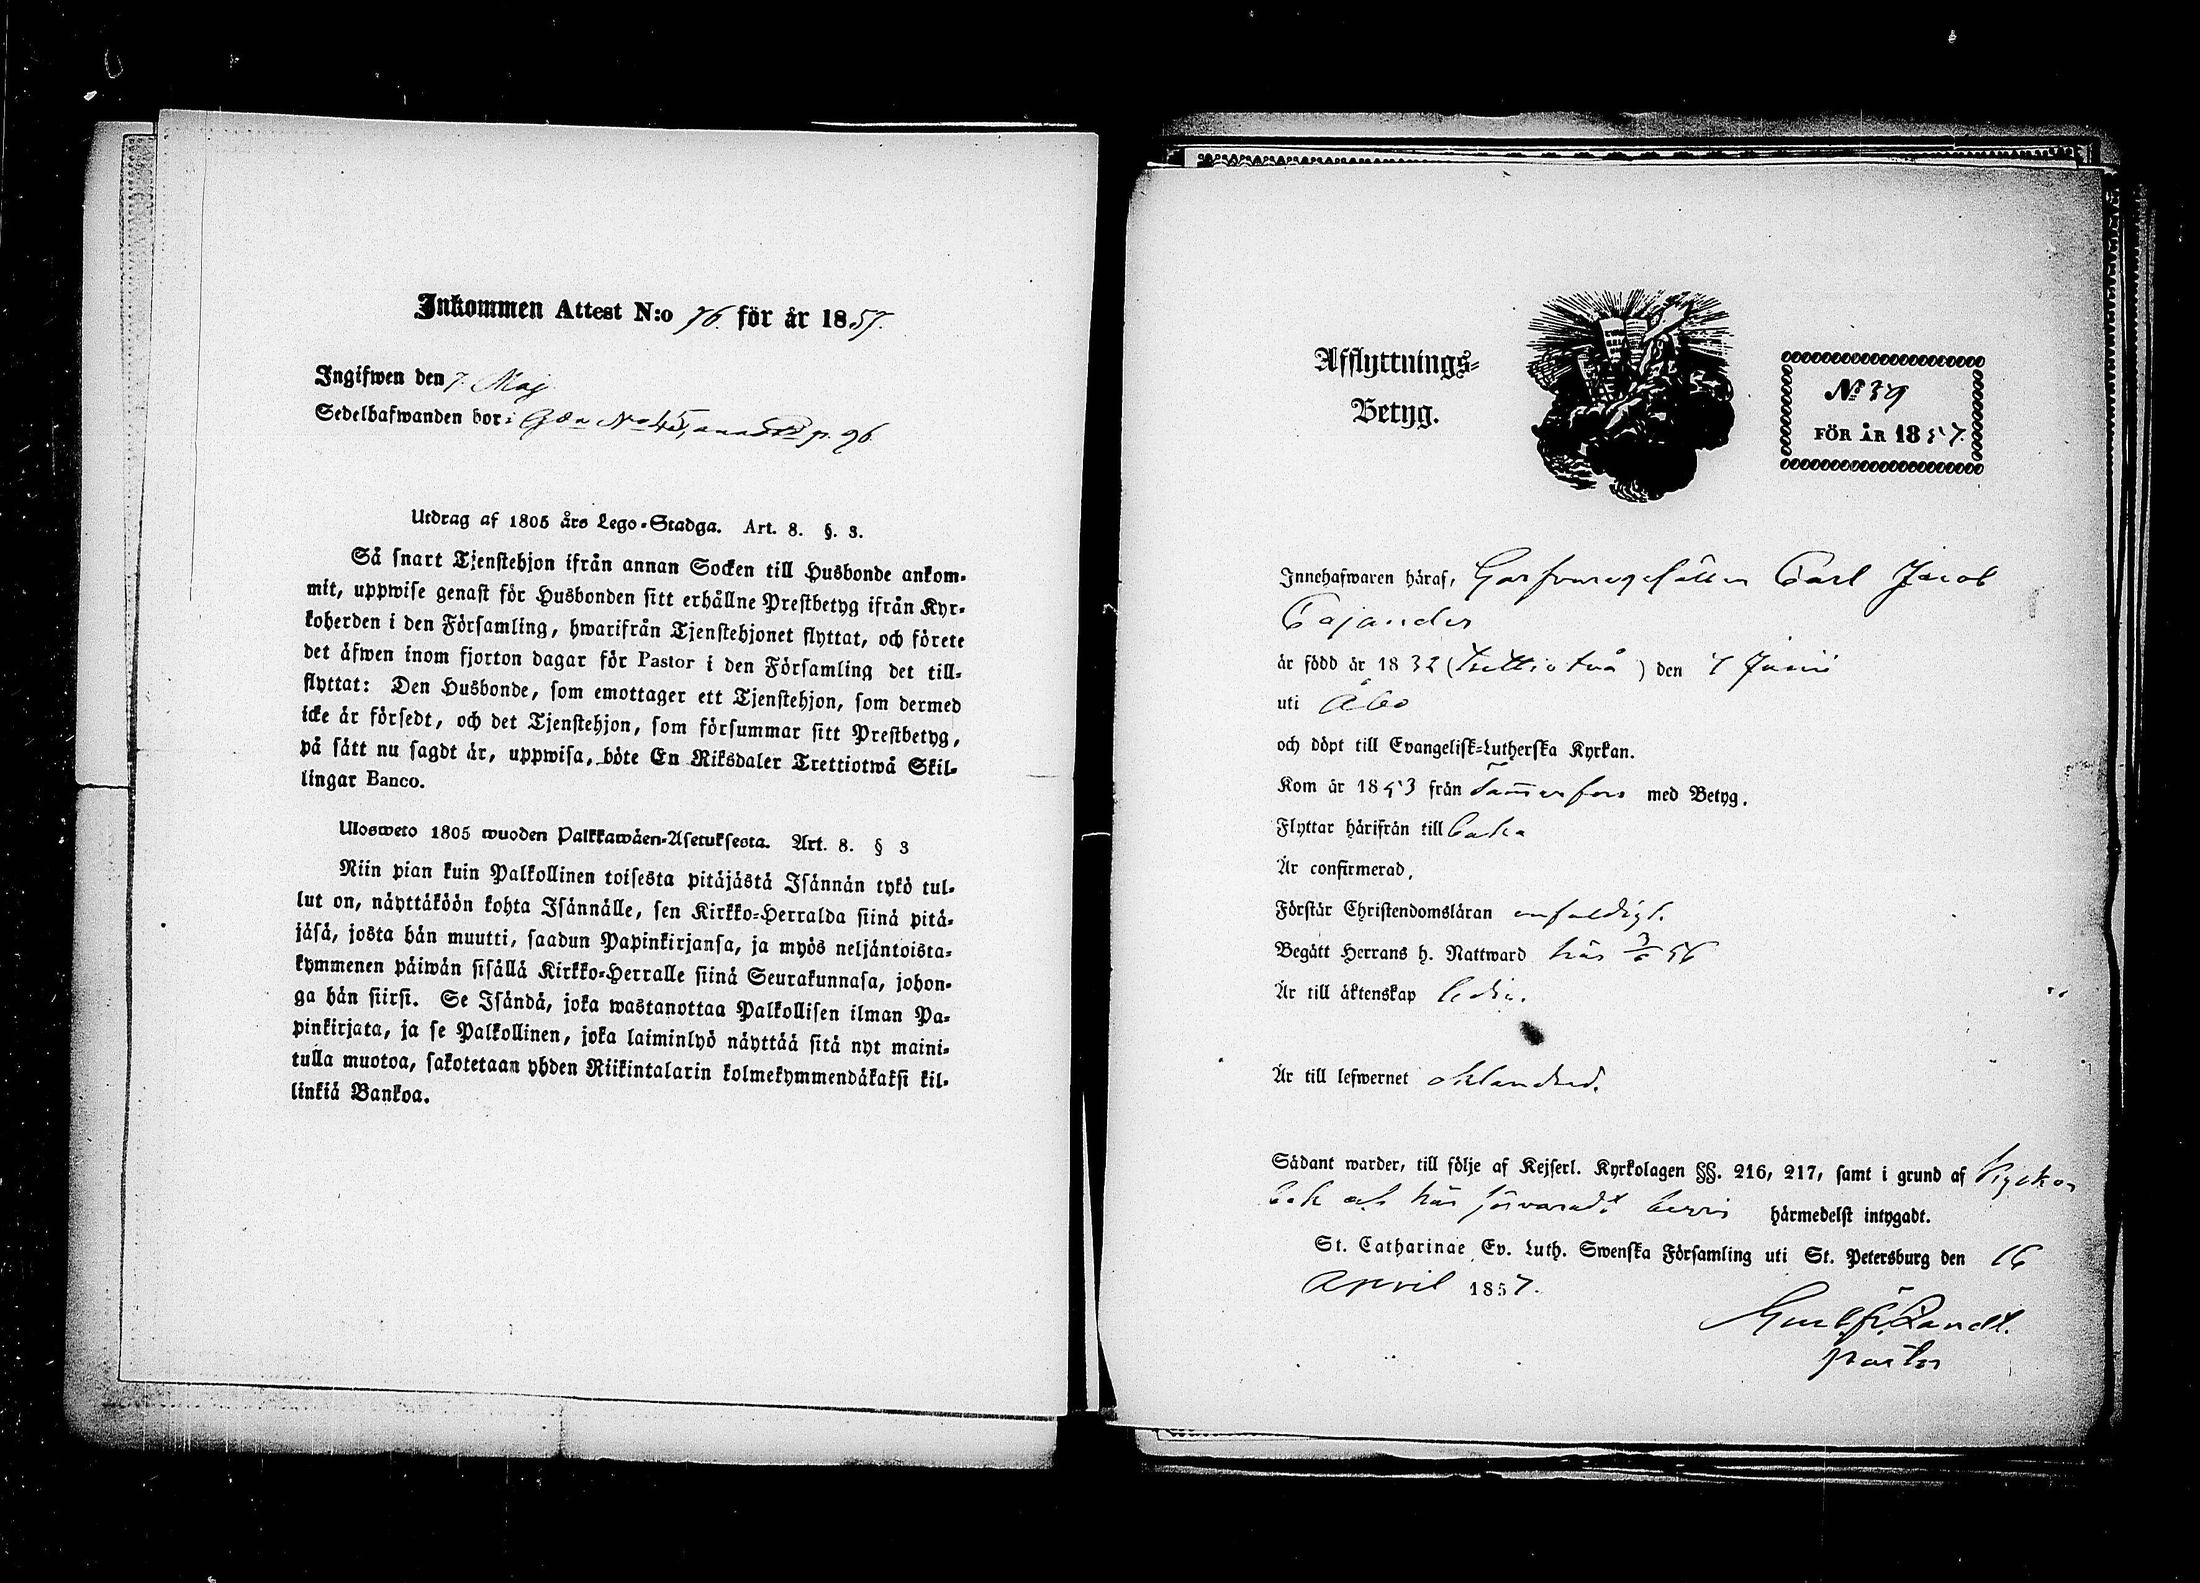 Inkommen Attest N:o 76. för år 1857.
Ingifwen den 7. Maj
Sedelhafwanden bor i Gdn No 45, p. 96
Utdrag af 1805 års Lego-Stadga. Art. 8. §. 3.
Så snart Tjenstehjon ifrån annan Socken till Husbonde ankom-
mit, uppwise genast för Husbonden sitt erhållne Prestbetyg ifrån Kyr-
koherden i den Församling, hwarifrån Tjenstehjonet flyttat, och förete
det äfwen inom fjorton dagar för Pastor i den Församling det till-
flyttat: Den Husbonde, som emottager ett Tjenstehjon, som dermed
icke är försedt, och det Tjenstehjon, som försummar sitt Prestbetyg,
på sätt nu sagdt är, uppwisa, böte En Riksdaler Trettiotwå Skil-
lingar Banco.
Ulosweto 1805 wuoden Palkkawäen-Asetuksesta. Art. 8. § 3
Niin pian kuin Palkollinen toisesta pitäjästä Isännän tykö tul-
lut on, näyttäköön kohta Isännälle, sen Kirkko-Herralda siinä pitä-
jäsä, josta hän muutti, saadun Papinkirjansa, ja myös neljäntoista-
kymmenen päiwän sisällä Kirkko-Herralle siinä Seurakunnasa, johon-
ga hän siirsi. Se Isändä, joka wastanottaa Palkollisen ilman Pa-
pinkirjata, ja se Palkollinen, joka laiminlyö näyttää sitä nyt maini-
tulla muotoa, sakotetaan yhden Riikintalarin kolmekymmendäkaksi kil-
linkiä Bankoa.
Afflyttnings-
Betyg.
No 39
FÖR ÅR 1857.
Innehafwaren häraf, Garfvaregesällen Carl Jacob
Cajander
är född år 1832 (trettio två) den 7 Junii
uti Åbo
och döpt till Evangelisk-Lutherska Kyrkan.
Kom år 1853 från Tammerfors med Betyg.
Flyttar härifrån till baka
Är confirmerad,
Förstår Christendomsläran enfaldigt.
Begått Herrans h. Nattward här 3/6 56
Är till äktenskap ledig.
Är till lefwernet oklandrad.
Sådant warder, till följe af Kejserl. Kyrkolagen §§. 216, 217, samt i grund af Kyrko
bok och här förvaradt bevis härmedelst intygadt.
St. Catharinae Ev. Luth. Swenska Församling uti St. Petersburg den 16
April 1857.
Gust. Fr. Zandt.
pastor